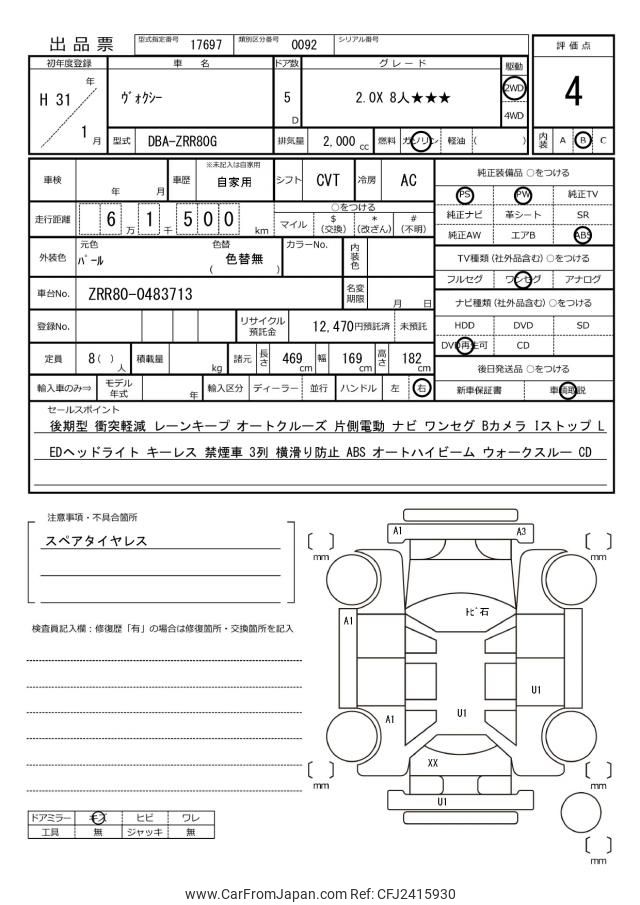 出品票 型式指定番号 17697 類別区分番号 0092 シリアル番号
評価点
4
内装 A B C
初年度登録 車名 ドア数 グレード 駆動
H 31 年 1 月
ヴォクシー 5 D 2.0X 8人★★★ 2WD
4WD
型式 DBA-ZRR80G 排気量 2,000 cc 燃料 ガソリン 軽油 ( )
車検 年 月 車歴 ※未記入は自家用 自家用 シフト CVT 冷房 AC
走行距離 6 1 万 千 5 0 0 km
○をつける
マイル $ (交換) * (改ざん) # (不明)
外装色 元色 パール 色替 ( 色替無 ) カラーNo. 内装色
車台No. ZRR80-0483713 名変期限 月 日
登録No. リサイクル預託金 12,470円預託済 未預託
定員 8( ) 人 積載量 kg 諸元 長さ 469 cm 幅 169 cm 高さ 182 cm
輸入車のみ⇒ モデル年式 年 輸入区分 ディーラー 並行 ハンドル 左 右
純正装備品 ○をつける
PS PW 純正TV
純正ナビ 革シート SR
純正AW エアB ABS
TV種類 (社外品含む) ○をつける
フルセグ ワンセグ アナログ
ナビ種類 (社外品含む) ○をつける
HDD DVD SD
DVD再生可 CD
後日発送品 ○をつける
新車保証書 車輌取説
セールスポイント
後期型 衝突軽減 レーンキープ オートクルーズ 片側電動 ナビ ワンセグ Bカメラ Iストップ L
EDヘッドライト キーレス 禁煙車 3列 横滑り防止 ABS オートハイビーム ウォークスルー CD
注意事項・不具合箇所
スペアタイヤレス
検査員記入欄：修復歴「有」の場合は修復箇所・交換箇所を記入
ドアミラー キズ ヒビ ワレ
工具 無 ジャッキ 無
A1 A3
mm mm
トビ石
A1
U1
U1
A1
XX
mm mm
U1
mm
www.CarFromJapan.com Ref: CFJ2415930